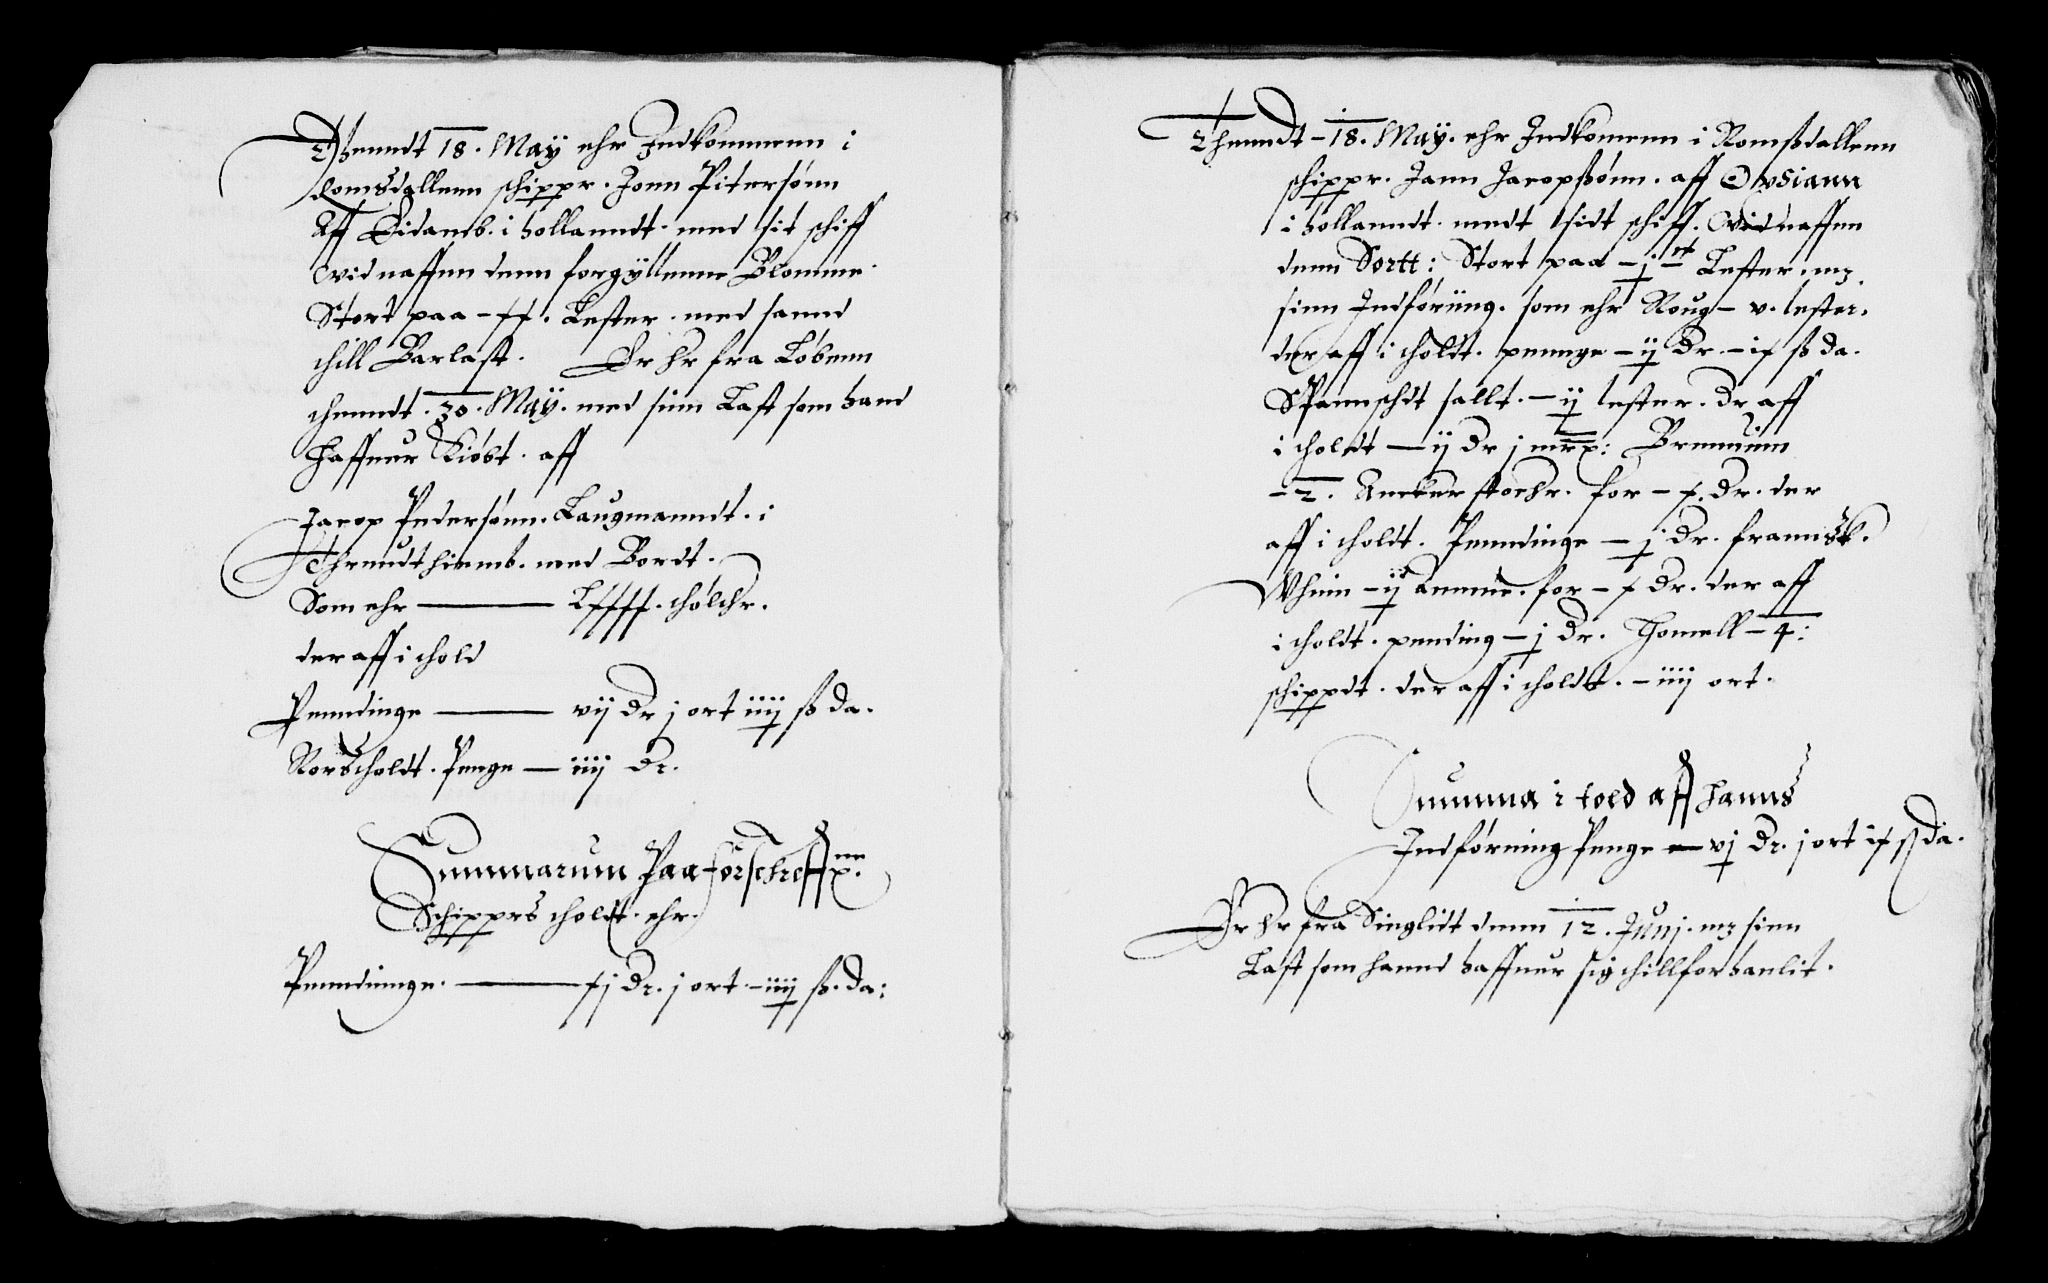 Thenndt 18. May ehr Indkommenn i
Romsdallenn schippr. Jonn Pitersønn
Aff Didamb. i hollanndt. med sit schiff
vid naffen denn forgyllenne Blomme.
Stort paa – xx. Lester. med sannd
thill Barlast. Er hr fra Løbenn
thenndt. 30. May. med sinn Last som hand
haffuer Kiøbt. aff
Jacop Pedersønn. Laugmanndt. i
Thrundthiemb. med Bordt.
Som ehr —— Lxxxx. thølthr.
der aff i thold
Penndinge —— vij Dr j ort iiij ß da.
Rorstholdt. Penge — iiij Dr.
Summarum Paa forschreffne
Schippers tholdt. ehr.
Penndinnge. —— xj Dr. j ort – iiij ß. da:
Thenndt – 18. May. ehr Indkomenn i Romsdallenn
schippr. Jann Jacopsønn. aff
i hollanndt. medt sidt schiff. vid naffen
denn Sortt: Stort paa – j – Lester. mz
sinn Indføring. som ehr Roug – v. lester.
der aff i tholdt. pennge – ij Dr. – ix ß da.
Spannscht sallt. – ij lester. Dr aff
i tholdt — ij Dr j mrx: Brennuin
– 2. Ancker stochr. for – x. Dr. der
aff i tholdt. Penndinge — j Dr. frannsk.
Vhiin – ij Amme. for – x Dr. der aff
i tholdt. pending – j Dr. Homell – 4:
schippdt. der aff i tholdt. – iiij ort.
Summa i told aff hanns
Indførning Penge — vj Dr. j ort ix ß da.
Er hr fra Singlitt denn 12. Junj. mz sinn
Last som hannd haffuer sig thillforhanlit.